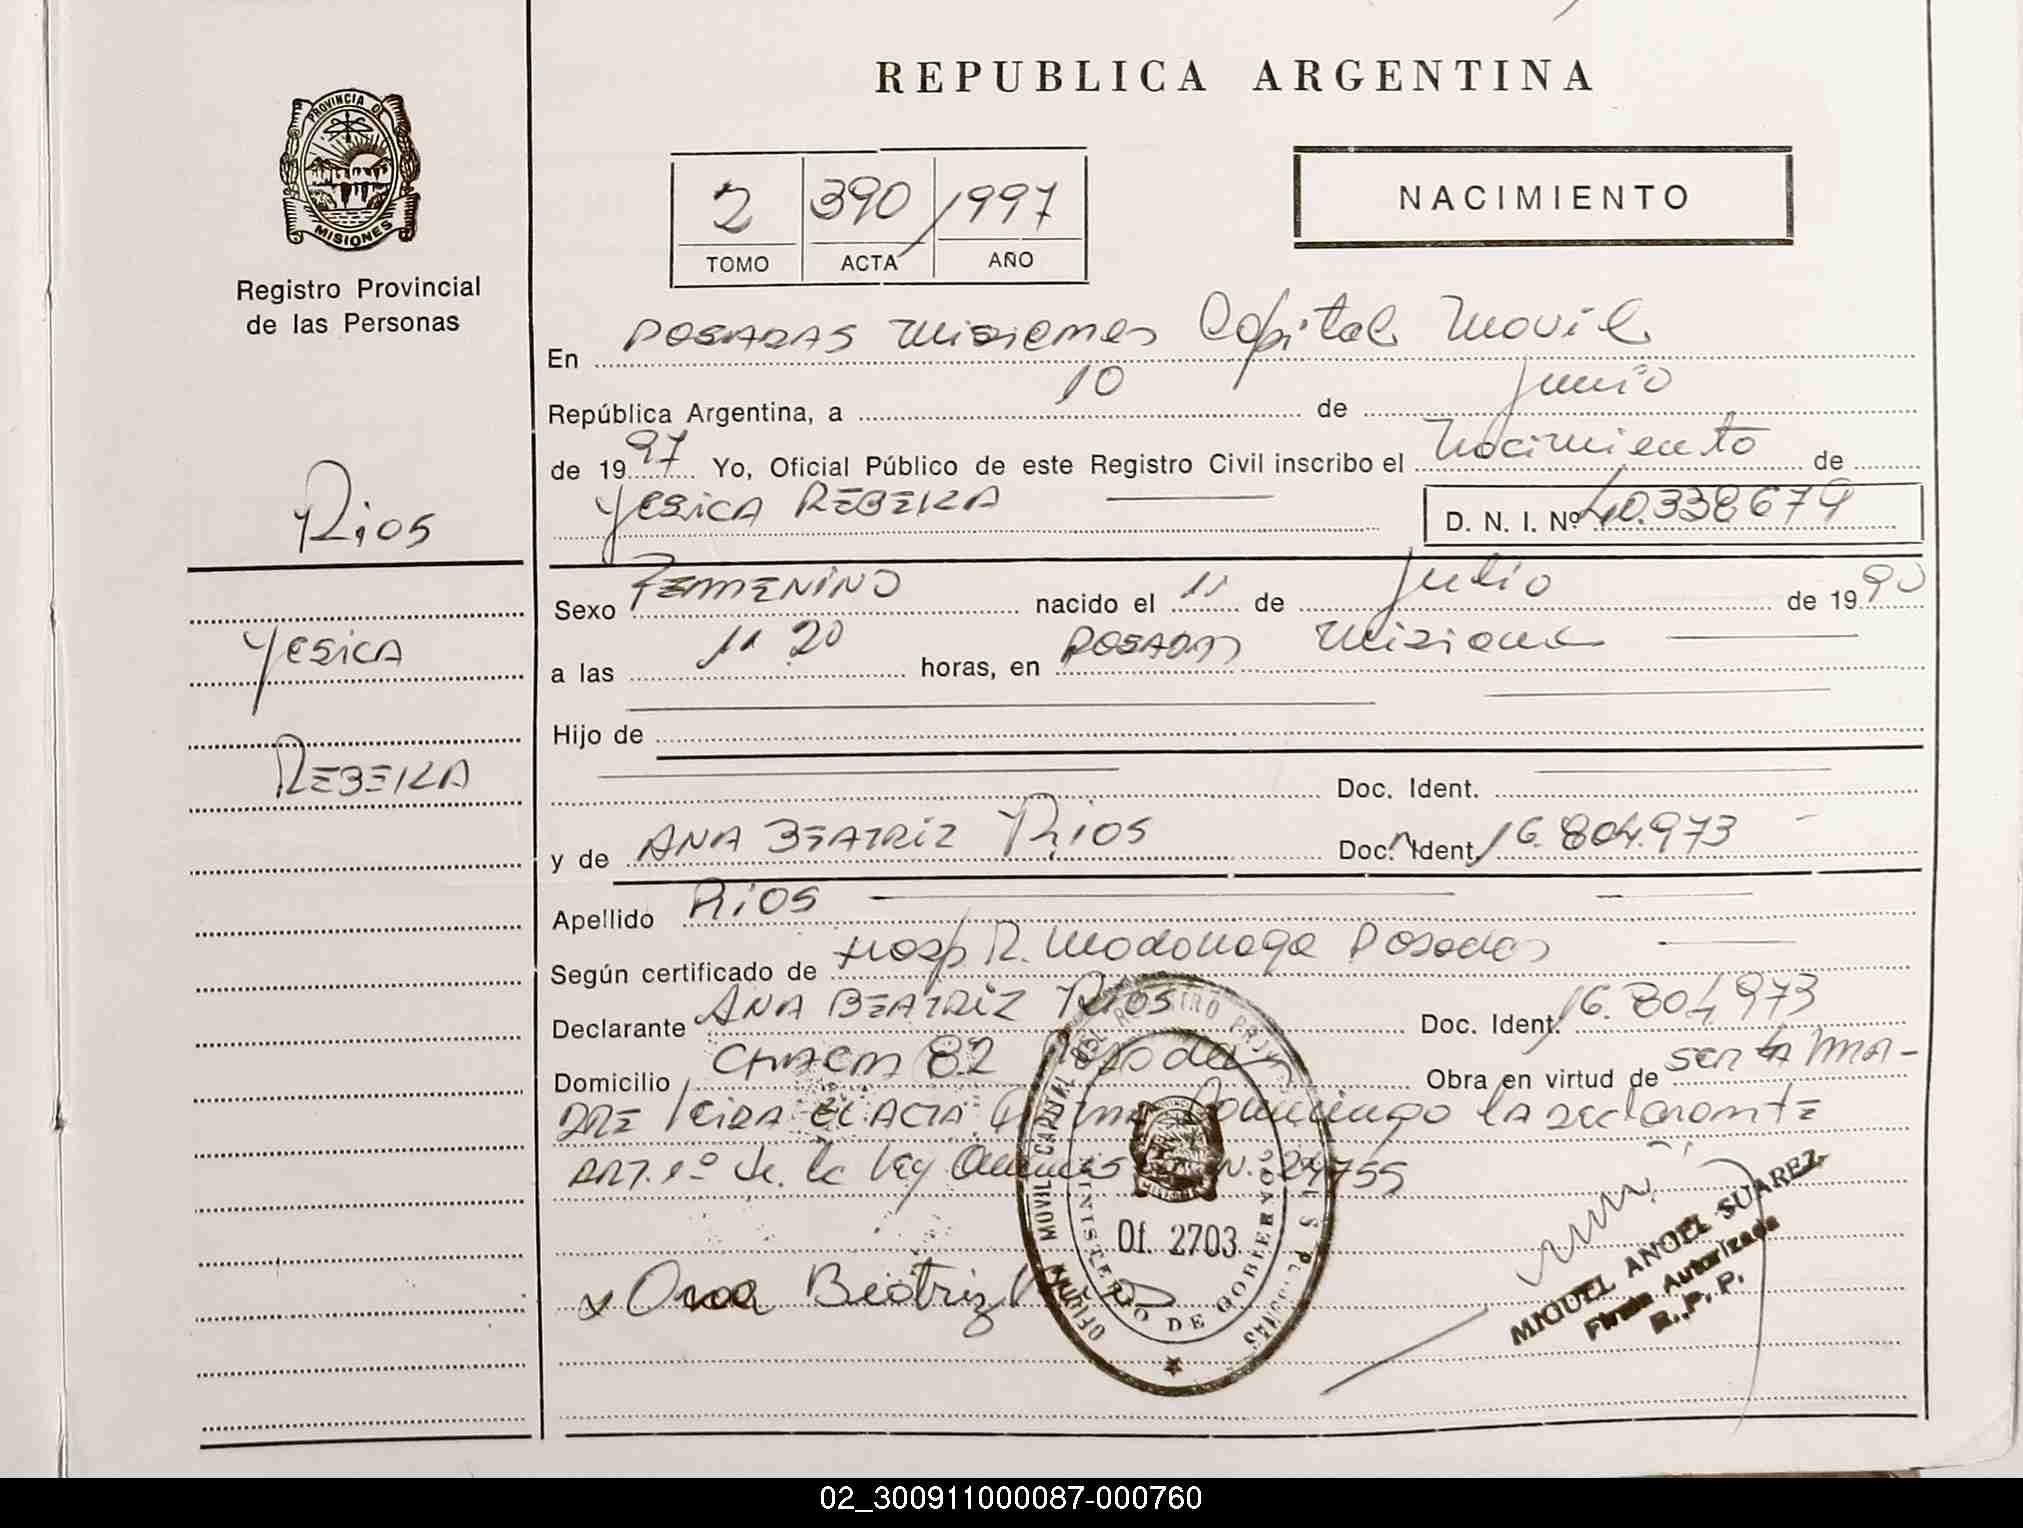 REPUBLICA ARGENTINA
PROVINCIA DE
MISIONES
Registro Provincial
de las Personas
2 390 / 1997
TOMO ACTA AÑO
NACIMIENTO
En POSADAS Misiones Capital Movil
República Argentina, a 10 de junio
de 1997 Yo, Oficial Público de este Registro Civil inscribo el Nacimiento de
YESICA REBEKA D. N. I. Nº 40.338679
Rios
YESICA
REBEKA
Sexo FEMENINO nacido el 11 de Julio de 1990
a las 11 20 horas, en POSADAS Misiones
Hijo de
Doc. Ident.
y de ANA BEATRIZ Rios Doc. Ident. 16.804.973
Apellido Rios
Según certificado de Hosp R. Madariaga Posadas
Declarante ANA BEATRIZ Rios Doc. Ident. 16.804.973
Domicilio CHACRA 82 Posadas Obra en virtud de ser la MA-
DRE LEIDA EL ACTA la declarante
ART. 1º de la Ley N. 24755
Ana Beatriz Rios
OFICINA MOVIL CAPITAL DEL REGISTRO
MINISTERIO DE GOBIERNO
Of. 2703
MIGUEL ANGEL SUAREZ
Firma Autorizada
R. P. P.
02_300911000087-000760